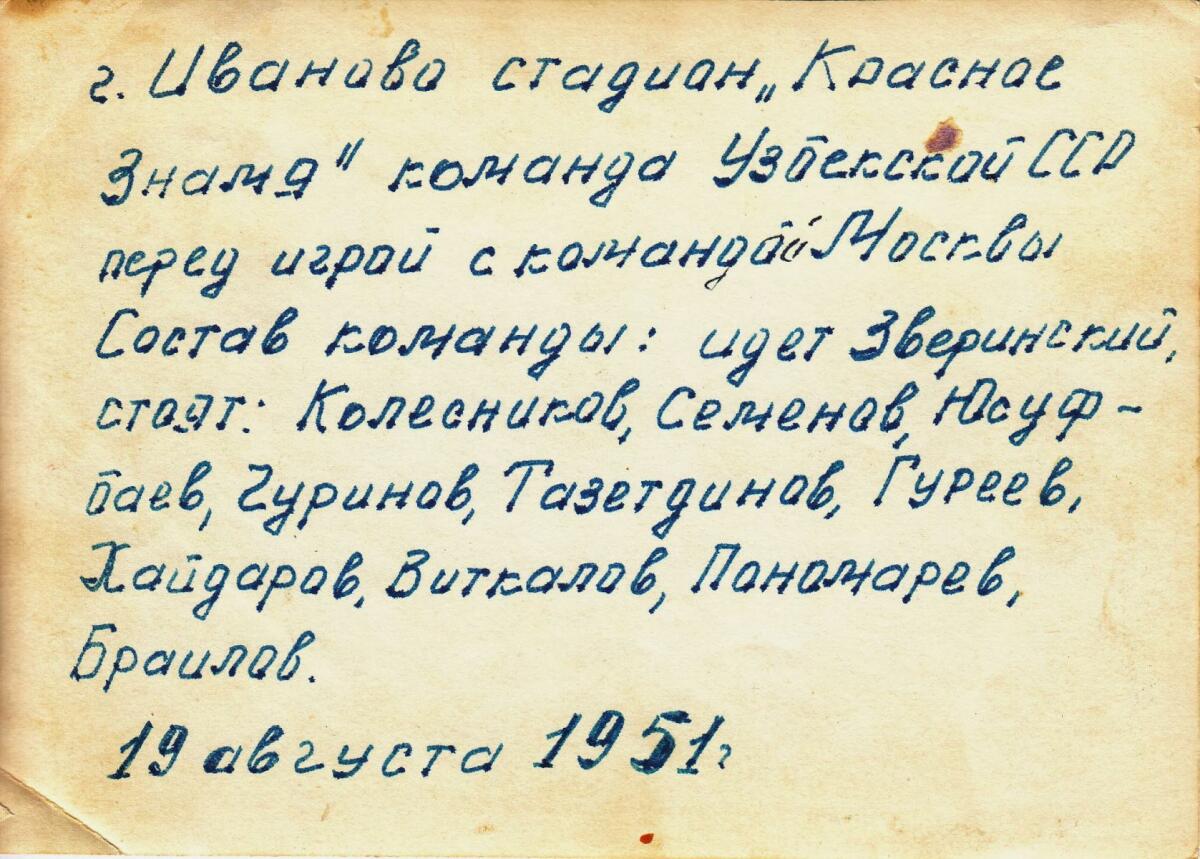 г. Иваново стадион „Красное
Знамя" команда Узбекской ССР
перед игрой с командой Москвы
Состав команды: идет Зверинский,
стоят: Колесников, Семенов, Юсуф-
баев, Чуринов, Тазетдинов, Гуреев,
Хайдаров, Виткалов, Пономарев,
Браилов.
19 августа 1951 г